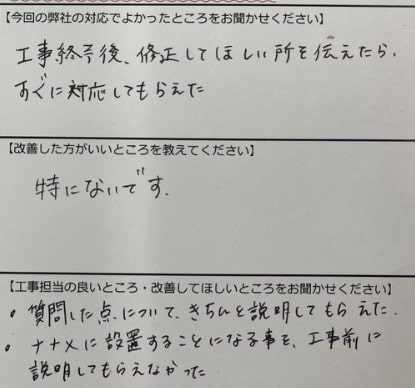 【今回の弊社の対応でよかったところをお聞かせください】
工事終了後、修正してほしい所を伝えたら、
すぐに対応してもらえた
【改善した方がいいところを教えてください】
特にないです。
【工事担当の良いところ・改善してほしいところをお聞かせください】
・質問した点について、きちんと説明してもらえた.
・ナナメに設置することになる事を、工事前に
説明してもらえなかった